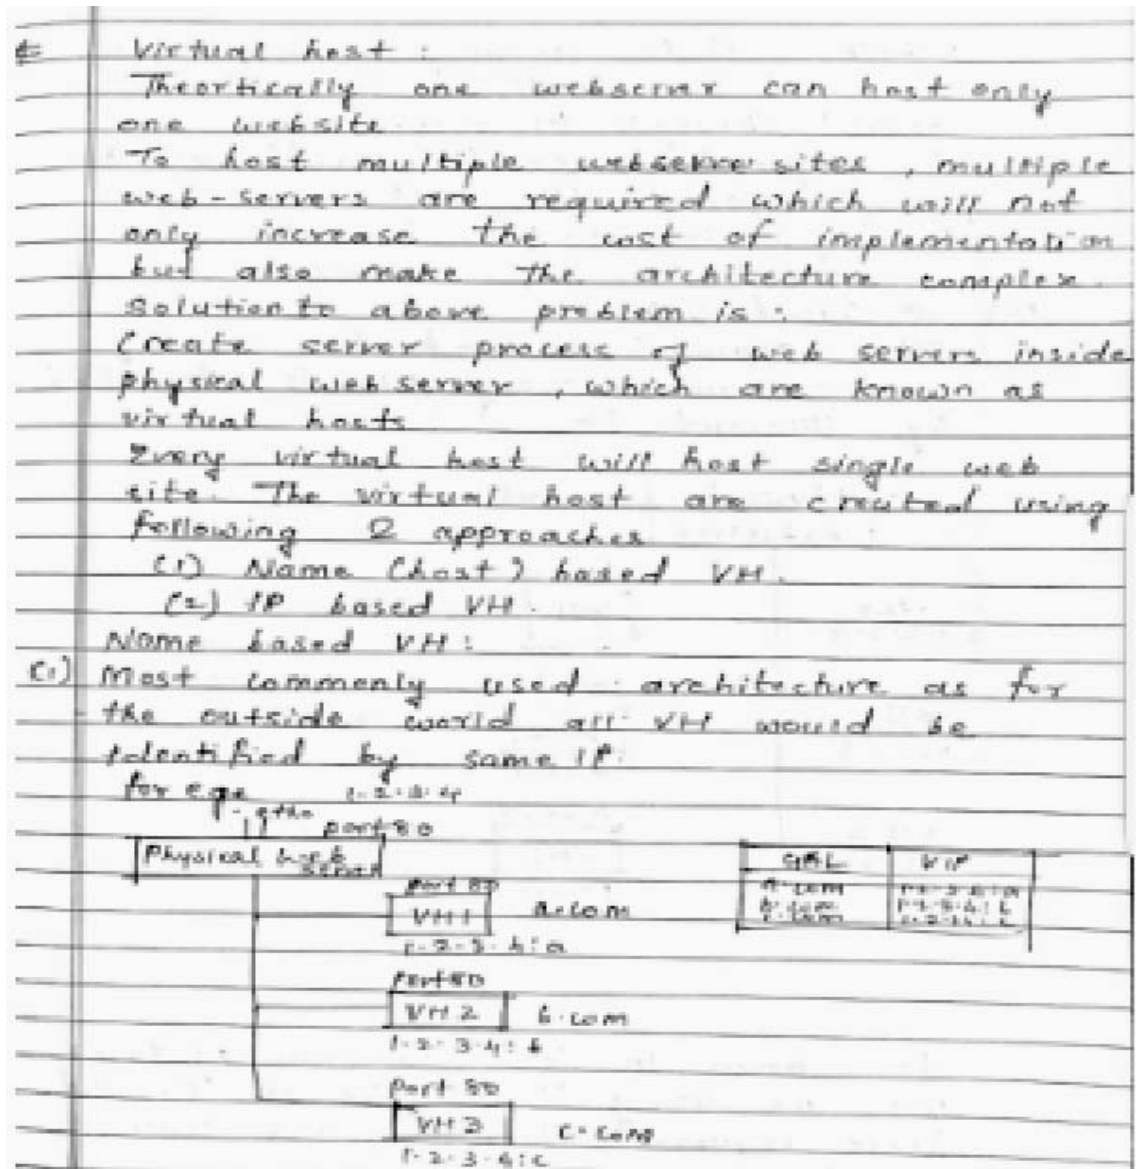 Virtual host :
Theortically one webserver can host only
one website
To host multiple webserve sites, multiple
web-servers are required which will not
only increase the cost of implementation
but also make the architecture complex.
Solution to above problem is :
Create server process of web servers inside
physical web server, which are known as
virtual hosts
Every virtual host will host single web
site. The virtual host are created using
following 2 approaches
(1) Name (host) based VH.
(2) IP based VH.
Name based VH :
(1) Most commonly used architecture as for
the outside world all VH would be
identified by same IP.
for eg 1.2.3.4
port 80
Physical web server
URL VIP
a.com 1.2.3.4:a
b.com 1.2.3.4:b
c.com 1.2.3.4:c
port 80
VH1 a.com
1.2.3.4:a
Port 80
VH2 b.com
1.2.3.4:b
Port 80
VH3 c.com
1.2.3.4:c